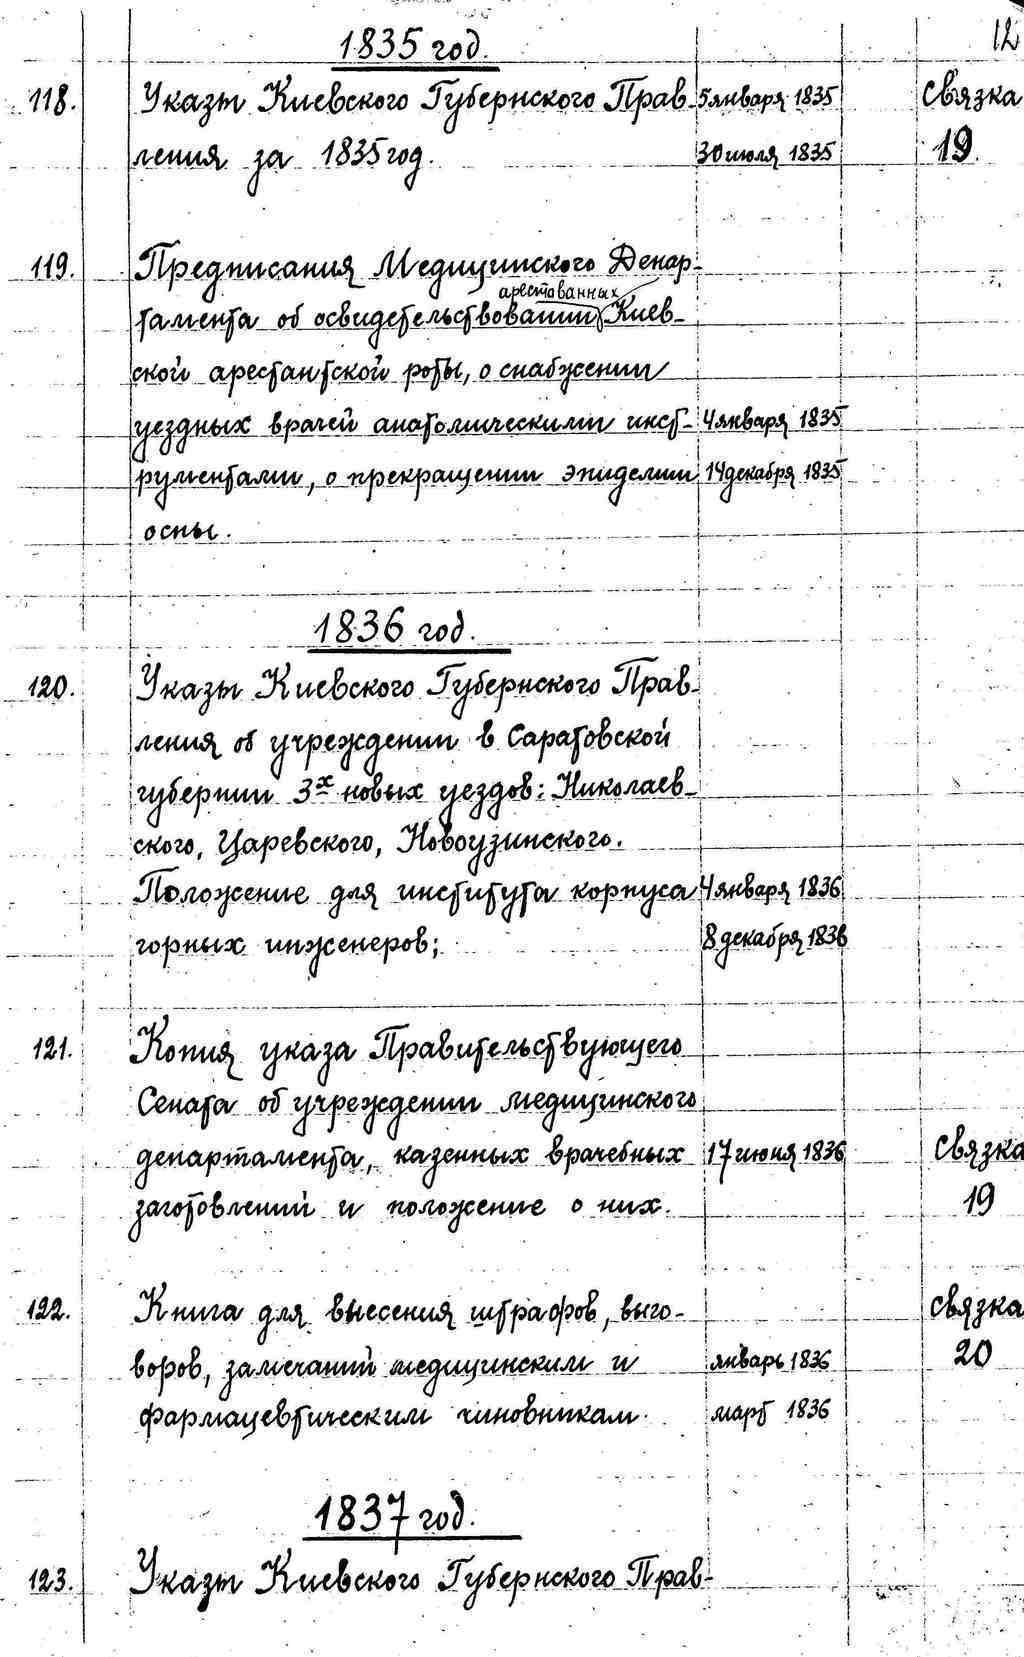 12
1835 год.
118. Указы Киевского Губернского Прав- 5 января 1835 Связка
ления за 1835 год. 30 июля 1835 19.
119. Предписания Медицинского Депар-
арестованных
тамента об освидетельствовании Киев-
ской арестантской роты, о снабжении
уездных врачей анатомическими инст- 4 января 1835
рументами, о прекращении эпидемии 14 декабря 1835
оспы.
1836 год.
120. Указы Киевского Губернского Прав-
ления об учреждении в Саратовской
губернии 3х новых уездов: Николаев-
ского, Царевского, Новоузинского.
Положение для института корпуса 4 января 1836
горных инженеров; 8 декабря 1836
121. Копия указа Правительствующего
Сената об учреждении медицинского
департамента, казенных врачебных 17 июня 1836 Связка
заготовлений и положение о них. 19
122. Книга для внесения штрафов, выго- Связка
воров, замечаний медицинским и январь 1836 20
фармацевтическим чиновникам. март 1836
1837 год.
123. Указы Киевского Губернского Прав-